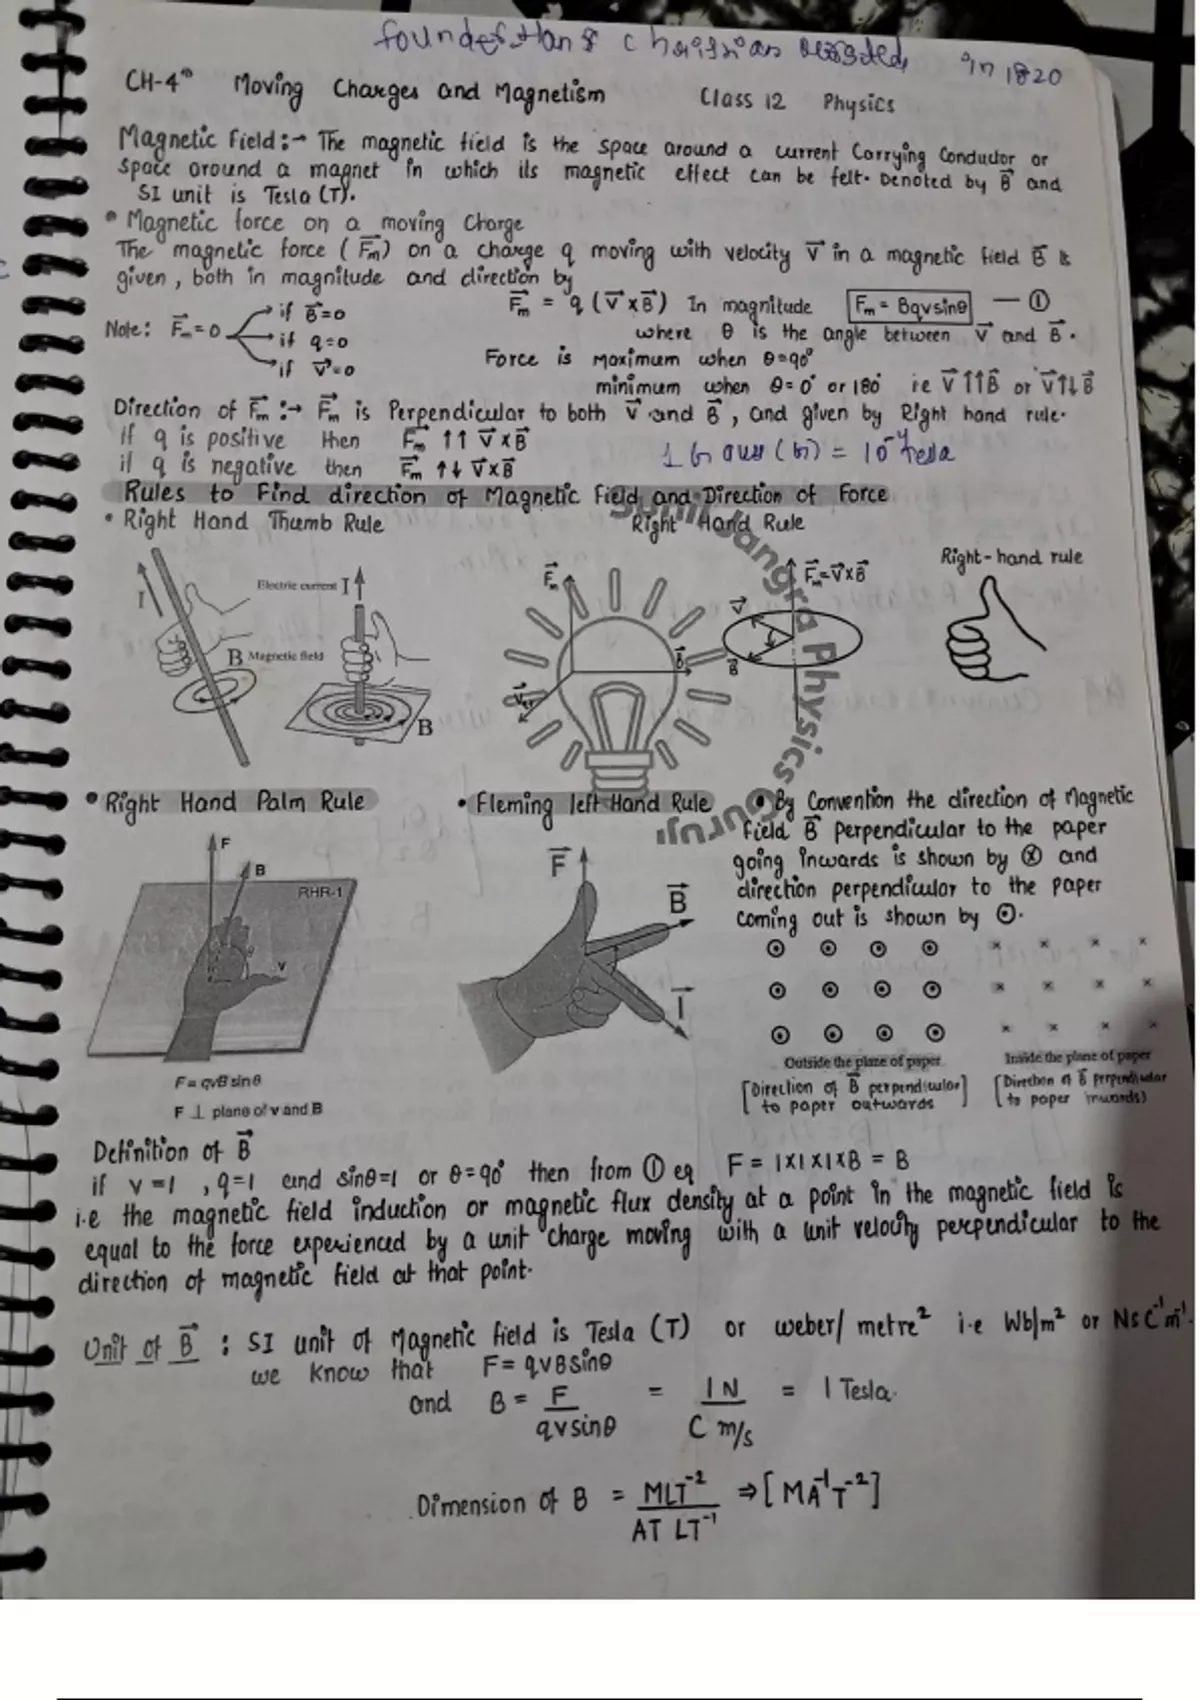 founder Hans Christian Oersted in 1820
CH-4th Moving Charges and Magnetism Class 12 Physics
Magnetic Field :→ The magnetic field is the space around a current Carrying Conductor or
space around a magnet in which its magnetic effect can be felt. Denoted by B⃗ and
SI unit is Tesla (T).
• Magnetic force on a moving Charge
The magnetic force (F⃗m) on a charge q moving with velocity V⃗ in a magnetic field B⃗ is
given, both in magnitude and direction by
F⃗m = q (V⃗ x B⃗) In magnitude Fm = Bqvsinθ — ①
Note: F⃗m = 0 if B⃗=0
if q=0
if V⃗=0
where θ is the angle between V⃗ and B⃗.
Force is Maximum when θ=90°
minimum when θ=0° or 180° ie V⃗↑↑B⃗ or V⃗↑↓B⃗
Direction of F⃗m :→ F⃗m is Perpendicular to both V⃗ and B⃗, and given by Right hand rule.
If q is positive then F⃗m ↑↑ V⃗xB⃗
if q is negative then F⃗m ↑↓ V⃗xB⃗
1 Gauss (G) = 10⁻⁴ Tesla
Rules to Find direction of Magnetic Field and Direction of Force
• Right Hand Thumb Rule
Right Hand Rule
Right-hand rule
I
Electric current I
B Magnetic field
B
F⃗m
B⃗
V⃗
F⃗m=V⃗xB⃗
V⃗
B⃗
Sunil Jangra Physics Guruji
• Right Hand Palm Rule
F
B
RHR-1
θ
V
F = qvB sin θ
F ⊥ plane of v and B
• Fleming left Hand Rule
F⃗
B⃗
I⃗
• By Convention the direction of Magnetic
Field B⃗ perpendicular to the paper
going inwards is shown by ⊗ and
direction perpendicular to the paper
coming out is shown by ⊙.
⊙ ⊙ ⊙ ⊙ × × × ×
⊙ ⊙ ⊙ ⊙ × × × ×
⊙ ⊙ ⊙ ⊙ × × × ×
Outside the plane of paper
[Direction of B⃗ perpendicular
to paper outwards]
Inside the plane of paper
[Direction of B⃗ perpendicular
to paper inwards)
Definition of B⃗
if v=1 , q=1 and sinθ=1 or θ=90° then from ① eq F = 1X1X1XB = B
i.e the magnetic field induction or magnetic flux density at a point in the magnetic field is
equal to the force experienced by a unit charge moving with a unit velocity perpendicular to the
direction of magnetic field at that point.
Unit of B⃗ : SI unit of Magnetic field is Tesla (T) or weber/metre² i.e Wb/m² or NsC⁻¹m⁻¹.
we know that F = qvBsinθ
and B = F/qvsinθ = 1N/C m/s = 1 Tesla.
Dimension of B = MLT⁻²/AT LT⁻¹ ⇒ [MA⁻¹T⁻²]